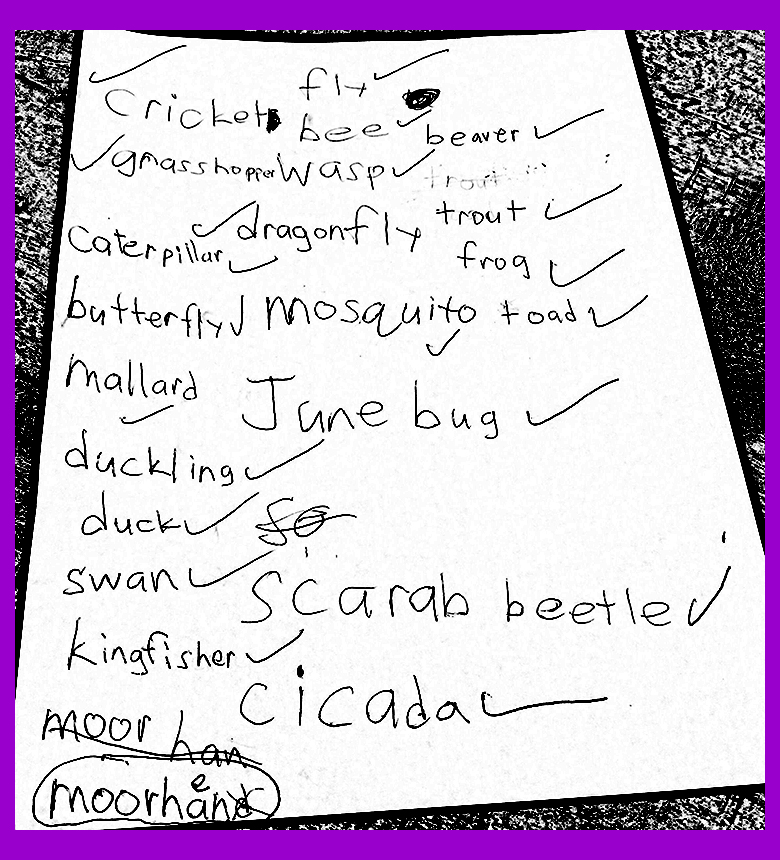 fly
Cricket
bee
beaver
grasshopper
wasp
trout
trout
caterpillar
dragonfly
frog
butterfly
mosquito
toad
mallard
June bug
duckling
duck
swan
scarab beetle
kingfisher
cicada
moor han
moorhen